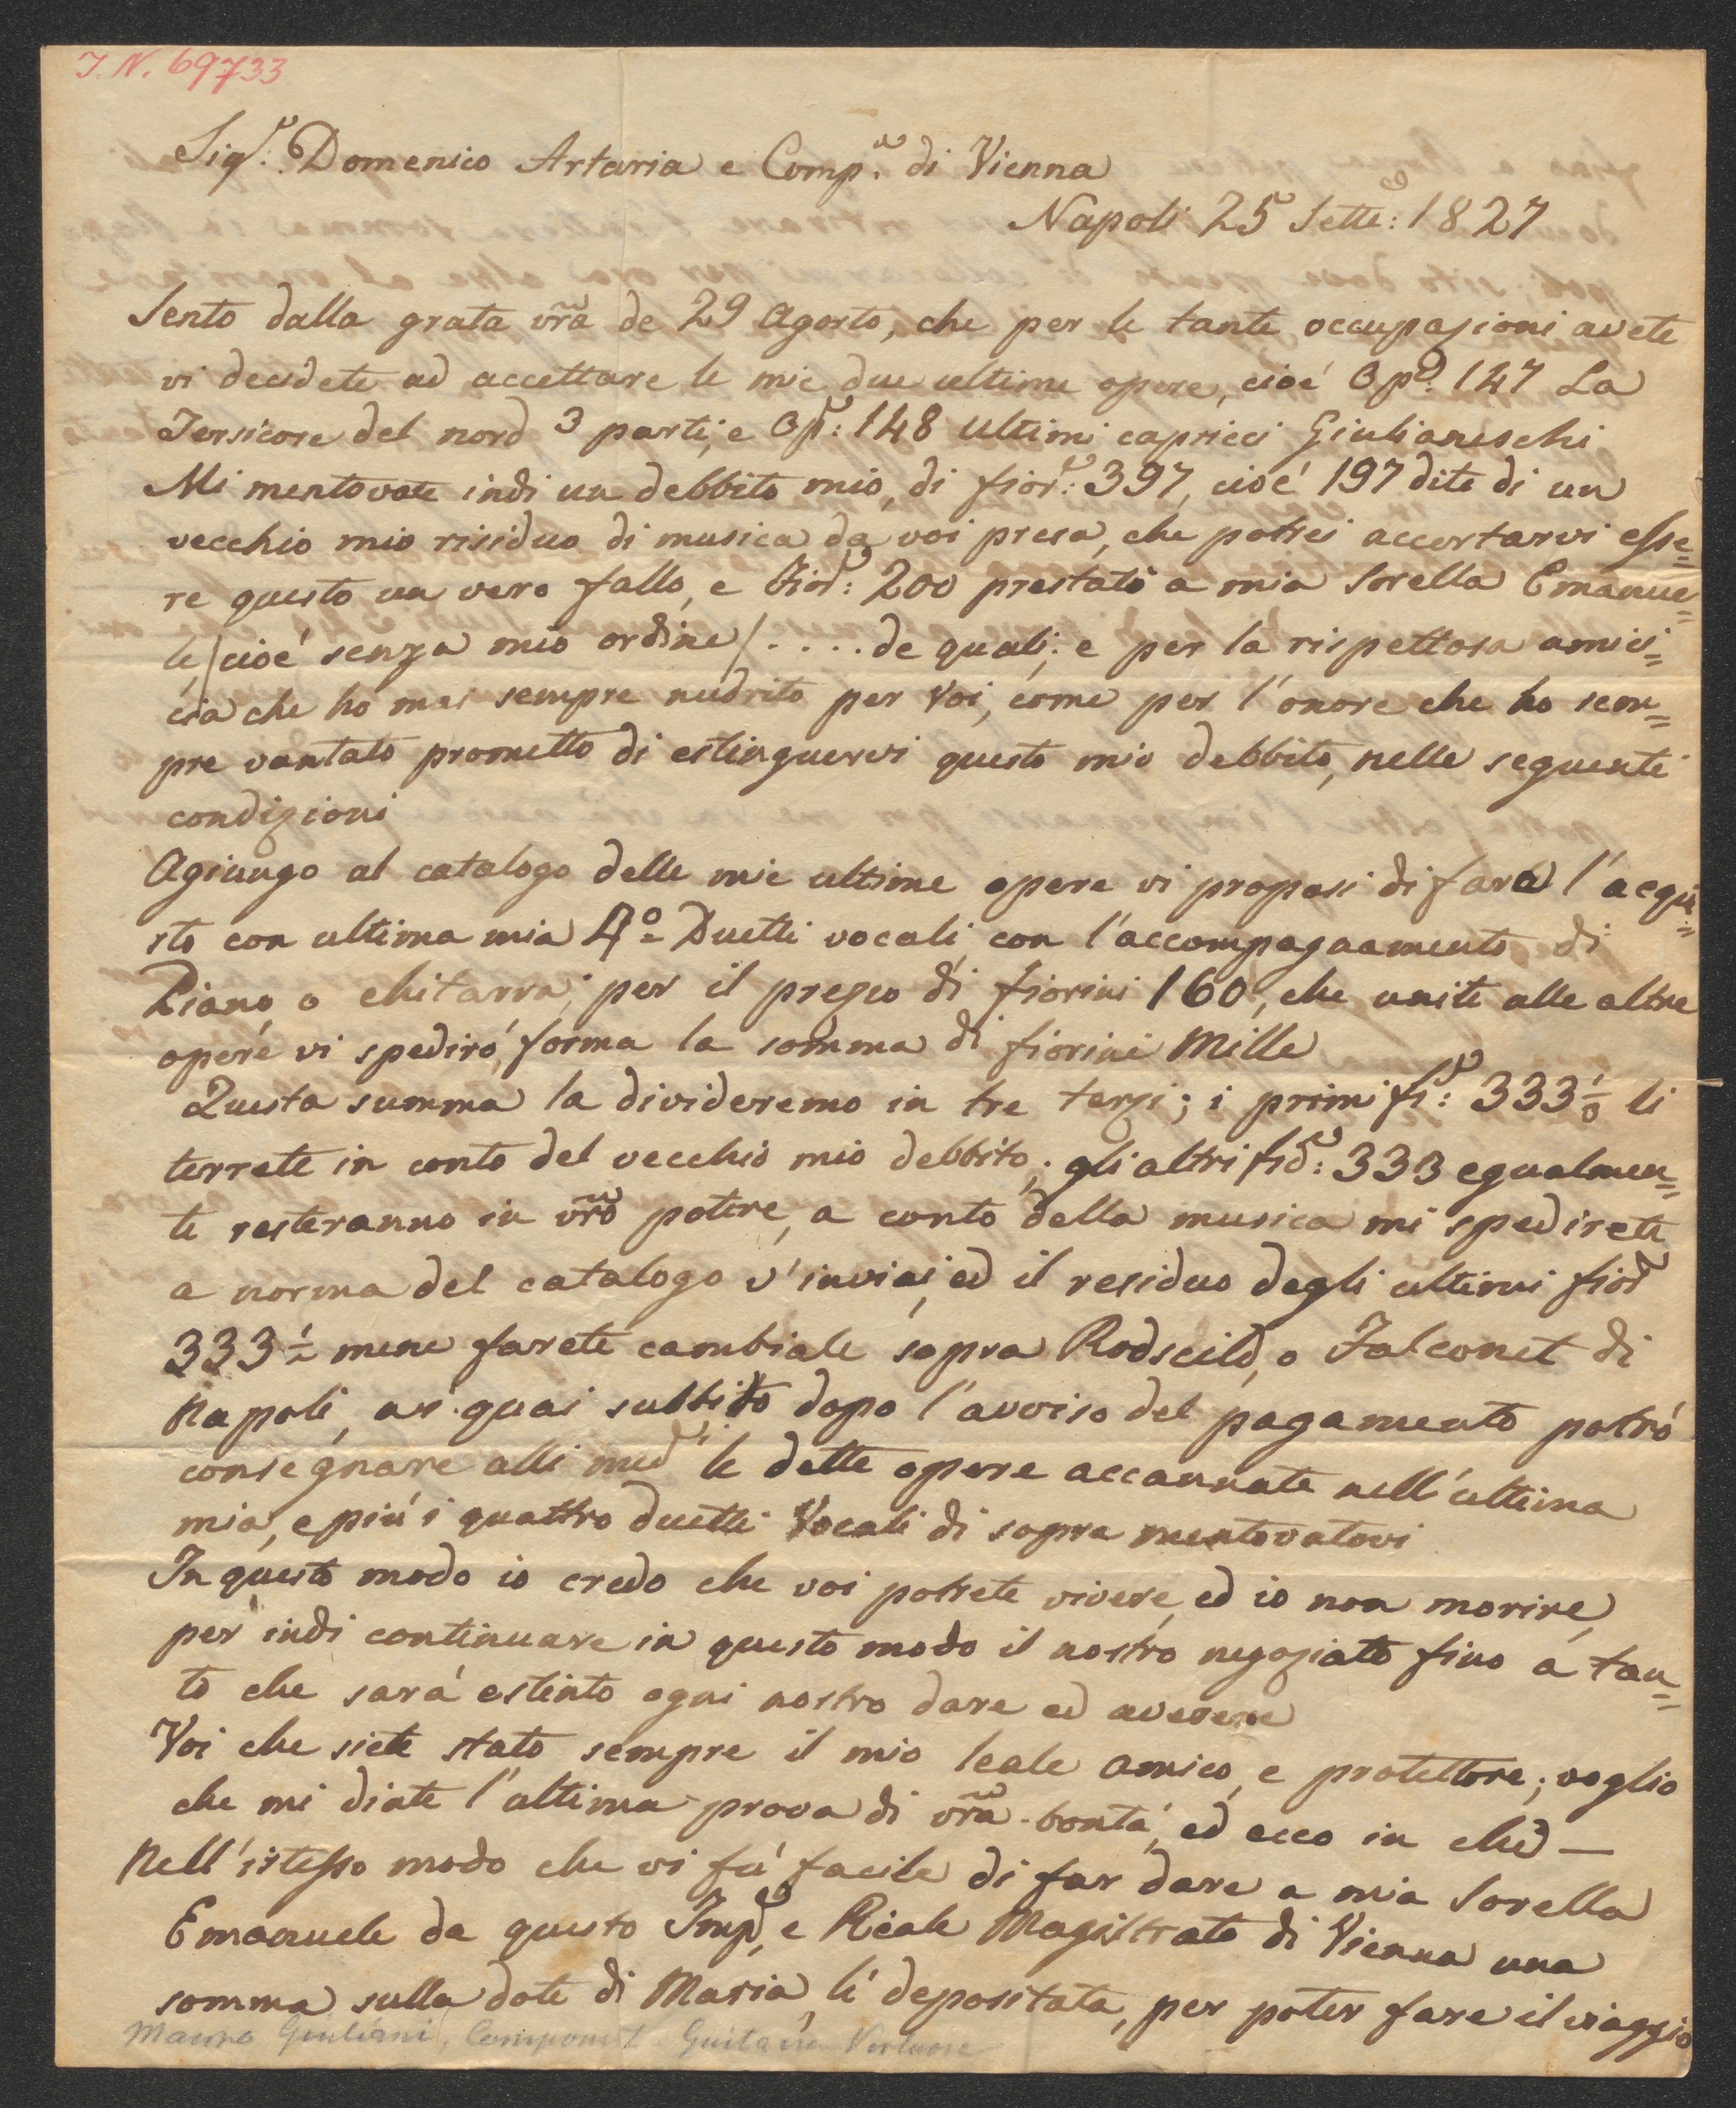 I. N. 69733
Sigr. Domenico Artaria e Compa. di Vienna
Napoli 25 Sette: 1827
Sento dalla grata vra de 29 Agosto, che per le tante occupazioni avete
vi decidete ad accettare le mie due ultime opere, cioé Opa. 147 La
Tersicore del nord 3 parti, e Op: 148 Ultimi capricci Giulianeschi
Mi mentovate indi un debbito mio, di fior: 397, cioé 197 dite di un
vecchio mio risiduo di musica da voi presa, che potrei accertarvi esse=
re questo un vero fallo, e Fior: 200 prestati a mia Sorella Emanue=
le, /cioé senza mio ordine/ . . . . de quali; e per la rispettosa amici=
cia che ho mai sempre nudrito per Voi, come per l'onore che ho sem=
pre vantato prometto di estinguervi questo mio debbito, nelle seguenti
condizioni
Agiungo al catalogo delle mie ultime opere vi proposi di fara l'acqui=
sto con ultima mia 4o= Duetti vocali con l'accompagnamento di
Piano o chitarra; per il prezzo di fiorini 160, che unite alle altre
opere vi spediró, forma la somma di fiorini Mille
Questa summa la divideremo in tre terzi; i primi fi: 333 li
terrete in conto del vecchio mio debbito; gli altri fior: 333 egualmen=
te resteranno in vro potere, a conto della musica mi spedirete
a norma del catalogo v'inviai, ed il residuo degli ultimi fior
333 mene farete cambiale sopra Rodscild, o Falconet di
Napoli, ai quai subbito dopo l'avviso del pagamento potró
consegnare alli medi le dette opere accannate nell'ultima
mia, e piú i quattro duetti Vocali di sopra mentovatovi
In questo modo io credo che voi potrete vivere, ed io non morire,
per indi continuare in questo modo il nostro negoziato fino a tan=
to che sará estinto ogni nostro dare ed avere
Voi che siete stato sempre il mio leale amico, e protettore; voglio
che mi diate l'ultima prova di vra bontá, ed ecco in che —
Nell'istesso modo che vi fú facile di far dare a mia Sorella
Emanuele da questo Imp, e Reale Magistrato di Vienna una
somma sulla dote di Maria, lí depositata, per poter fare il viaggio
Mauro Giuliani, Componist Guitarre Virtuose